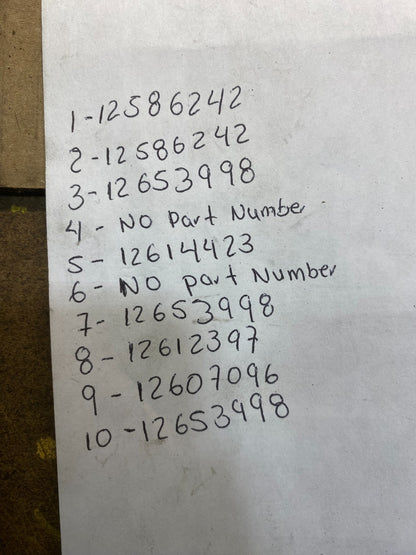 1-12586242
2-12586242
3-12653998
4 - NO Part Number
5 - 12614423
6 - NO part Number
7- 12653998
8 - 12612397
9 - 12607096
10 -12653998